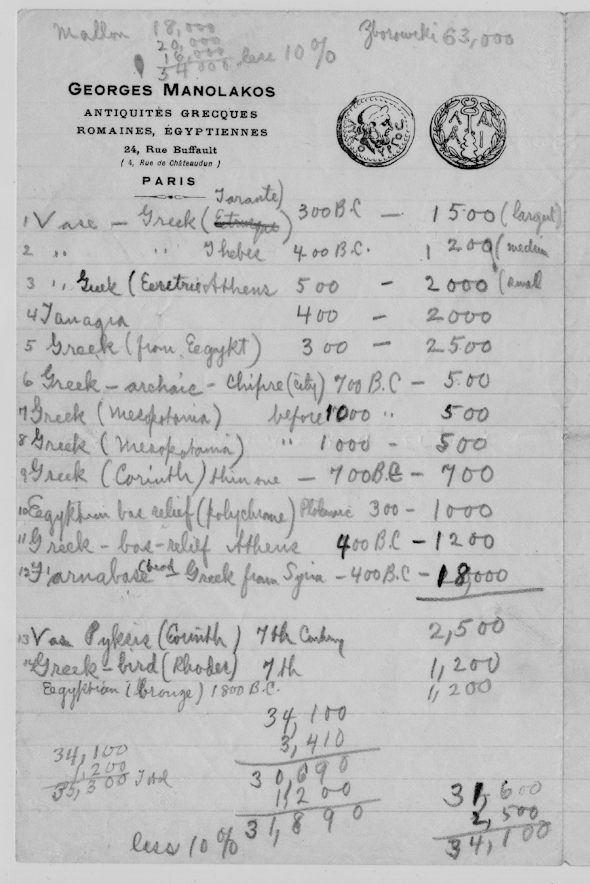 Mallon 18,000
20,000
16,000
54,000 less 10%
Zborowski 63,000
GEORGES MANOLAKOS
ANTIQUITÉS GRECQUES
ROMAINES, ÉGYPTIENNES
24, Rue Buffault
( 4, Rue de Châteaudun )
PARIS
Tarante)
1 Vase - Greek ( ) 300 B.C - 1500 (largest)
2 " " Thebes 400 B.C. 1200 (medium
3 " Greek (Eeretrie Athens 500 - 2000 (small
4 Tanagra 400 - 2000
5 Greek (from Eegykt) 300 - 2500
6 Greek - archaic - Chipre (city) 700 B.C - 500
7 Greek (Mesopotamia) before 1000 " 500
8 Greek (Mesopotamia) " 1000 - 500
9 Greek (Corinth) thin one - 700 B.C - 700
10 Eegyptian bas relief (polychrome) 300 - 1000
11 Greek - bas-relief Athens 400 B.C - 1200
12 Farnabase (head) Greek from Syria - 400 B.C - 18,000
13 Vas Pyksis (Corinth) 7th Century 2,500
14 Greek - bird (Rhodes) 7th 1,200
Eegyptian (bronze) 1800 B.C. 1,200
34,100
3,410
30,690
1,200
31,890
34,100
1,200
35,300 Total
less 10%
31,600
2,500
34,100